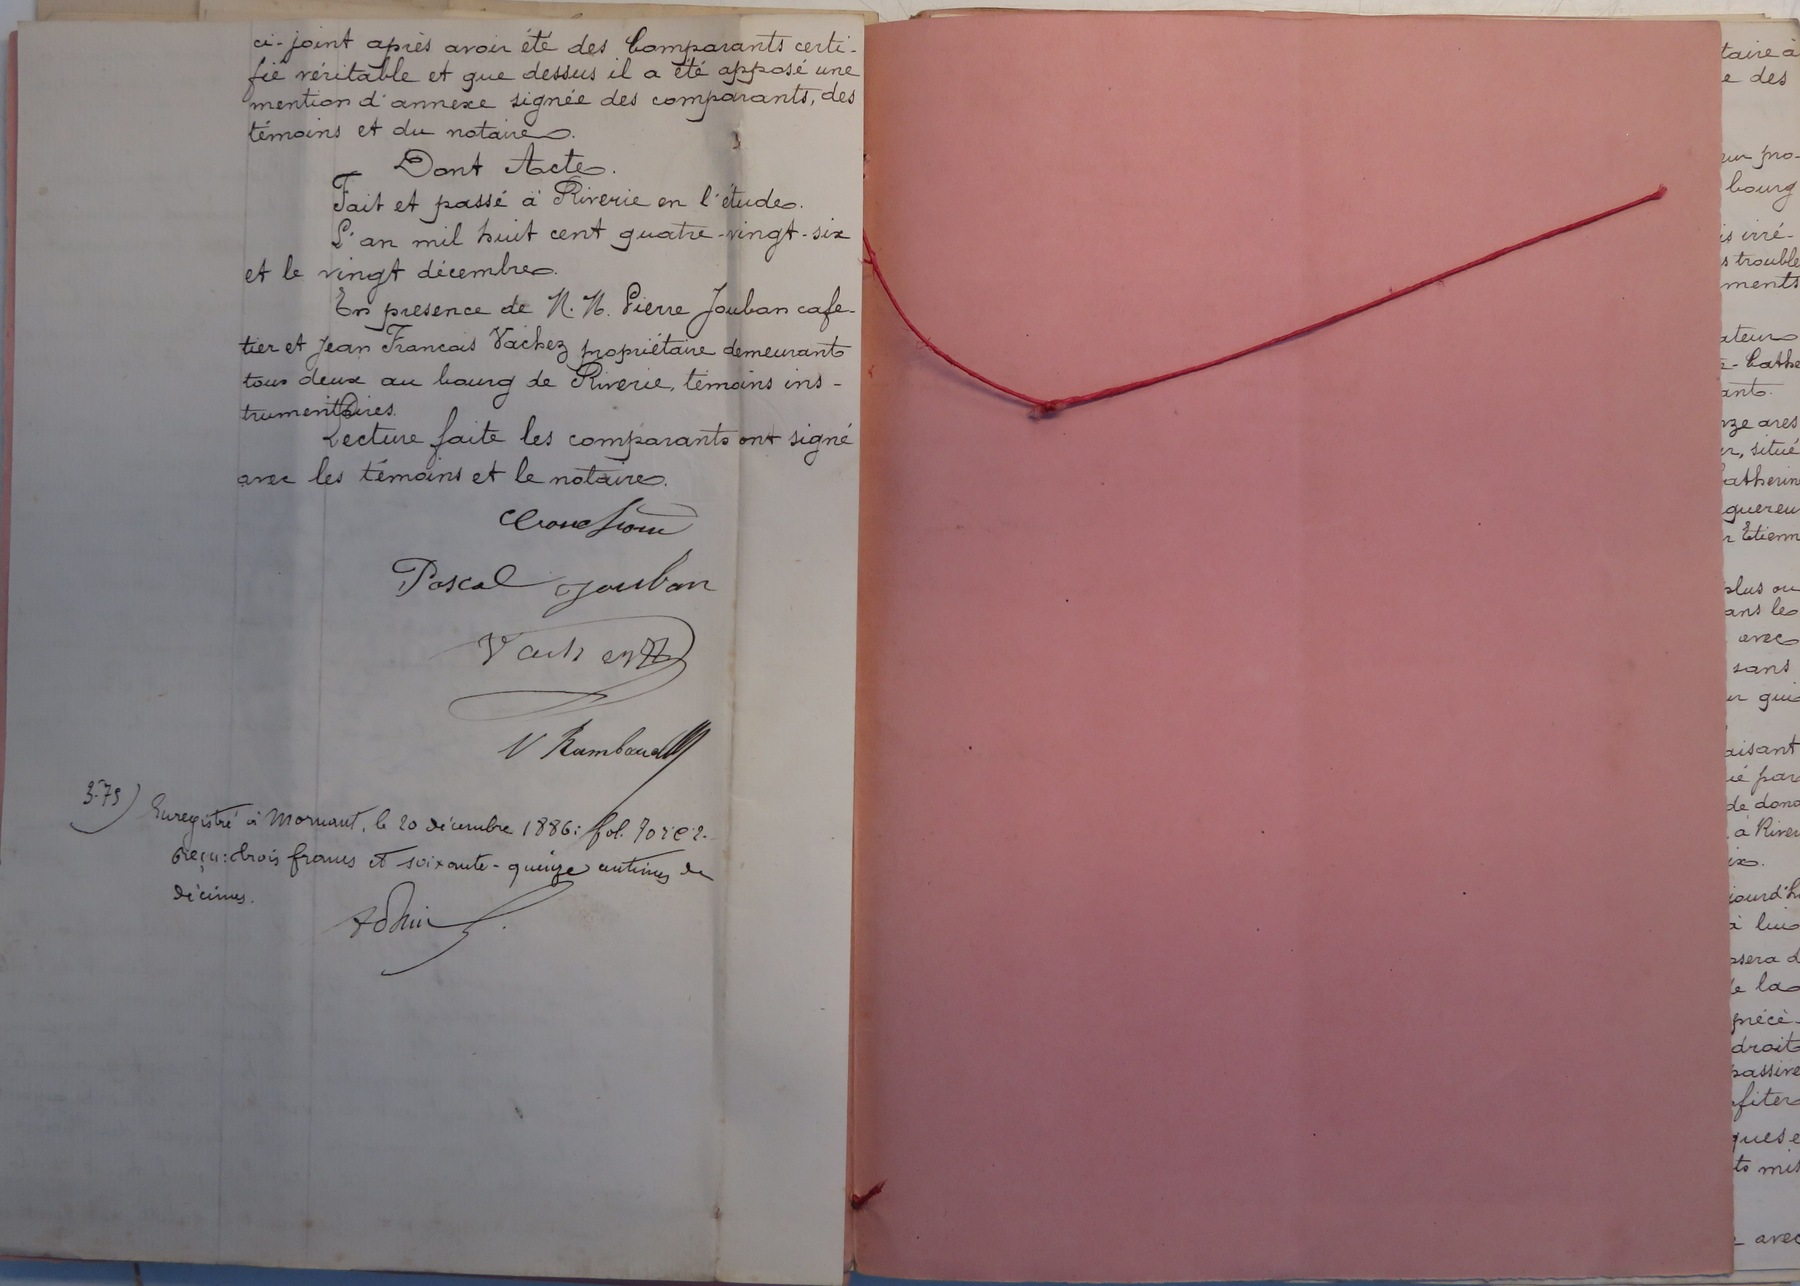 ci-joint après avoir été des Comparants certi-
fié véritable et que dessus il a été apposé une
mention d'annexe signée des comparants, des
témoins et du notaire.
Dont Acte.
Fait et passé à Riverie en l'étude.
L'an mil huit cent quatre-vingt-six
et le vingt décembre.
En presence de M. M. Pierre Jouban cafe-
tier et Jean Francois Vachez propriétaire demeurant
tous deux au bourg de Riverie, témoins ins-
trumentaires.
Lecture faite les comparants ont signé
avec les témoins et le notaire.
Pascal Jouban
Vachez
V Rambaud
3-75)
Enregistré à Mornant, le 20 décembre 1886: fol. 70
Reçu: trois francs et soixante-quinze centimes de
décimes.
taire à
e des
pro-
bourg
is irré-
s trouble
ments
ateur
- Cathe
ant.
nze ares
er, situé
atherin
guereu
r Etienn
plus ou
ans le
avec
sans
er qui
aisant
ié par
de dona
à River
ix.
jourd'h
à lui
sera d
e la
précé-
droit
passive
fiter
ques e
ts mis
avec